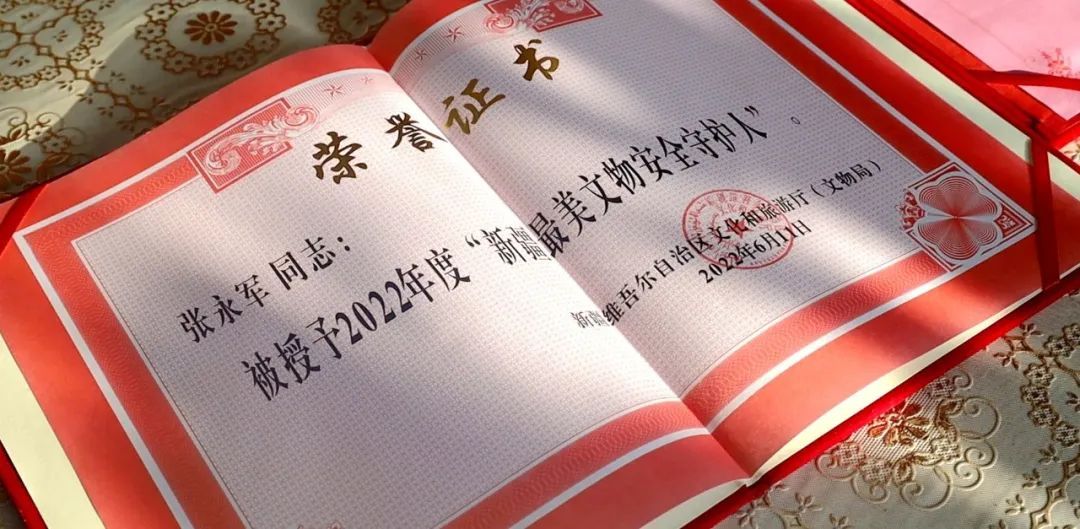 荣誉证书
张永军 同志：
被授予2022年度“新疆最美文物安全守护人”。
新疆维吾尔自治区文化和旅游厅（文物局）
2022年6月11日